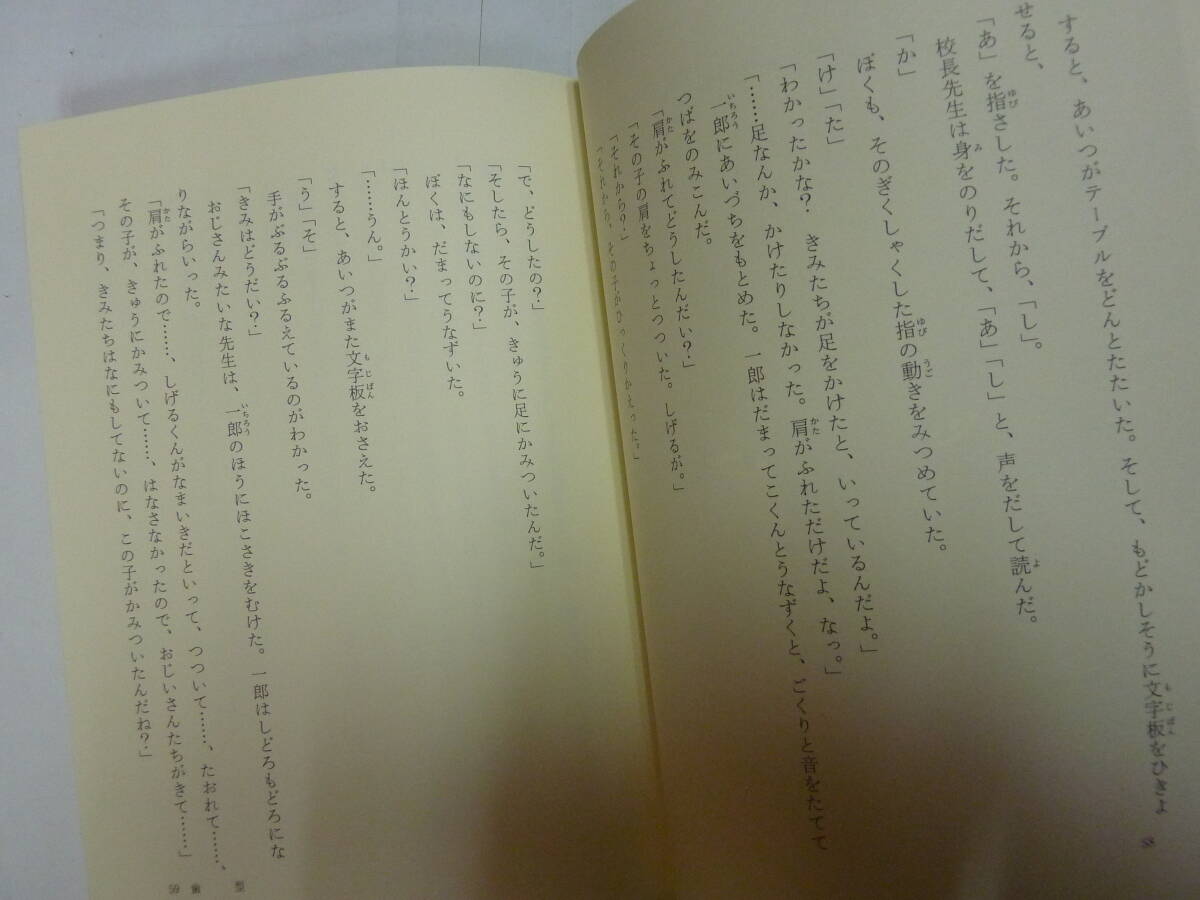 すると、あいつがテーブルをどんとたたいた。そして、もどかしそうに文字板をひきよ
せると、
「あ」を指さした。それから、「し」。
校長先生は身をのりだして、「あ」「し」と、声をだして読んだ。
「か」
ぼくも、そのぎくしゃくした指の動きをみつめていた。
「け」「た」
「わかったかな？ きみたちが足をかけたと、いっているんだよ。」
「……足なんか、かけたりしなかった。肩がふれただけだよ、なっ。」
一郎にあいづちをもとめた。一郎はだまってこくんとうなずくと、ごくりと音をたてて
つばをのみこんだ。
「肩がふれてどうしたんだい？」
「その子の肩をちょっとつついた。しげるが。」
「それから？」
「それから、その子がひっくりかえった。」
58
「で、どうしたの？」
「そしたら、その子が、きゅうに足にかみついたんだ。」
「なにもしないのに？」
ぼくは、だまってうなずいた。
「ほんとうかい？」
「……うん。」
すると、あいつがまた文字板をおさえた。
「う」「そ」
手がぶるぶるふるえているのがわかった。
「きみはどうだい？」
おじさんみたいな先生は、一郎のほうにほこさきをむけた。一郎はしどろもどろにな
りながらいった。
「肩がふれたので……、しげるくんがなまいきだといって、つついて……、たおれて……、
その子が、きゅうにかみついて……、はなさなかったので、おじいさんたちがきて……」
「つまり、きみたちはなにもしてないのに、この子がかみついたんだね？」
59 歯 型